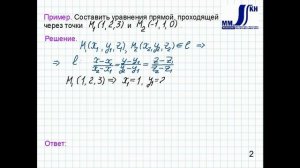 ММ КН
Пример. Составить уравнения прямой, проходящей
через точки M₁(1,2,3) и M₂(-1,1,0)
Решение.
M₁(x₁,y₁,z₁), M₂(x₂,y₂,z₂) ∈ l ⇒
⇒ l (x-x₁)/(x₂-x₁) = (y-y₁)/(y₂-y₁) = (z-z₁)/(z₂-z₁)
M₁(1,2,3) ⇒ x₁=1, y₁=2
Ответ:
2